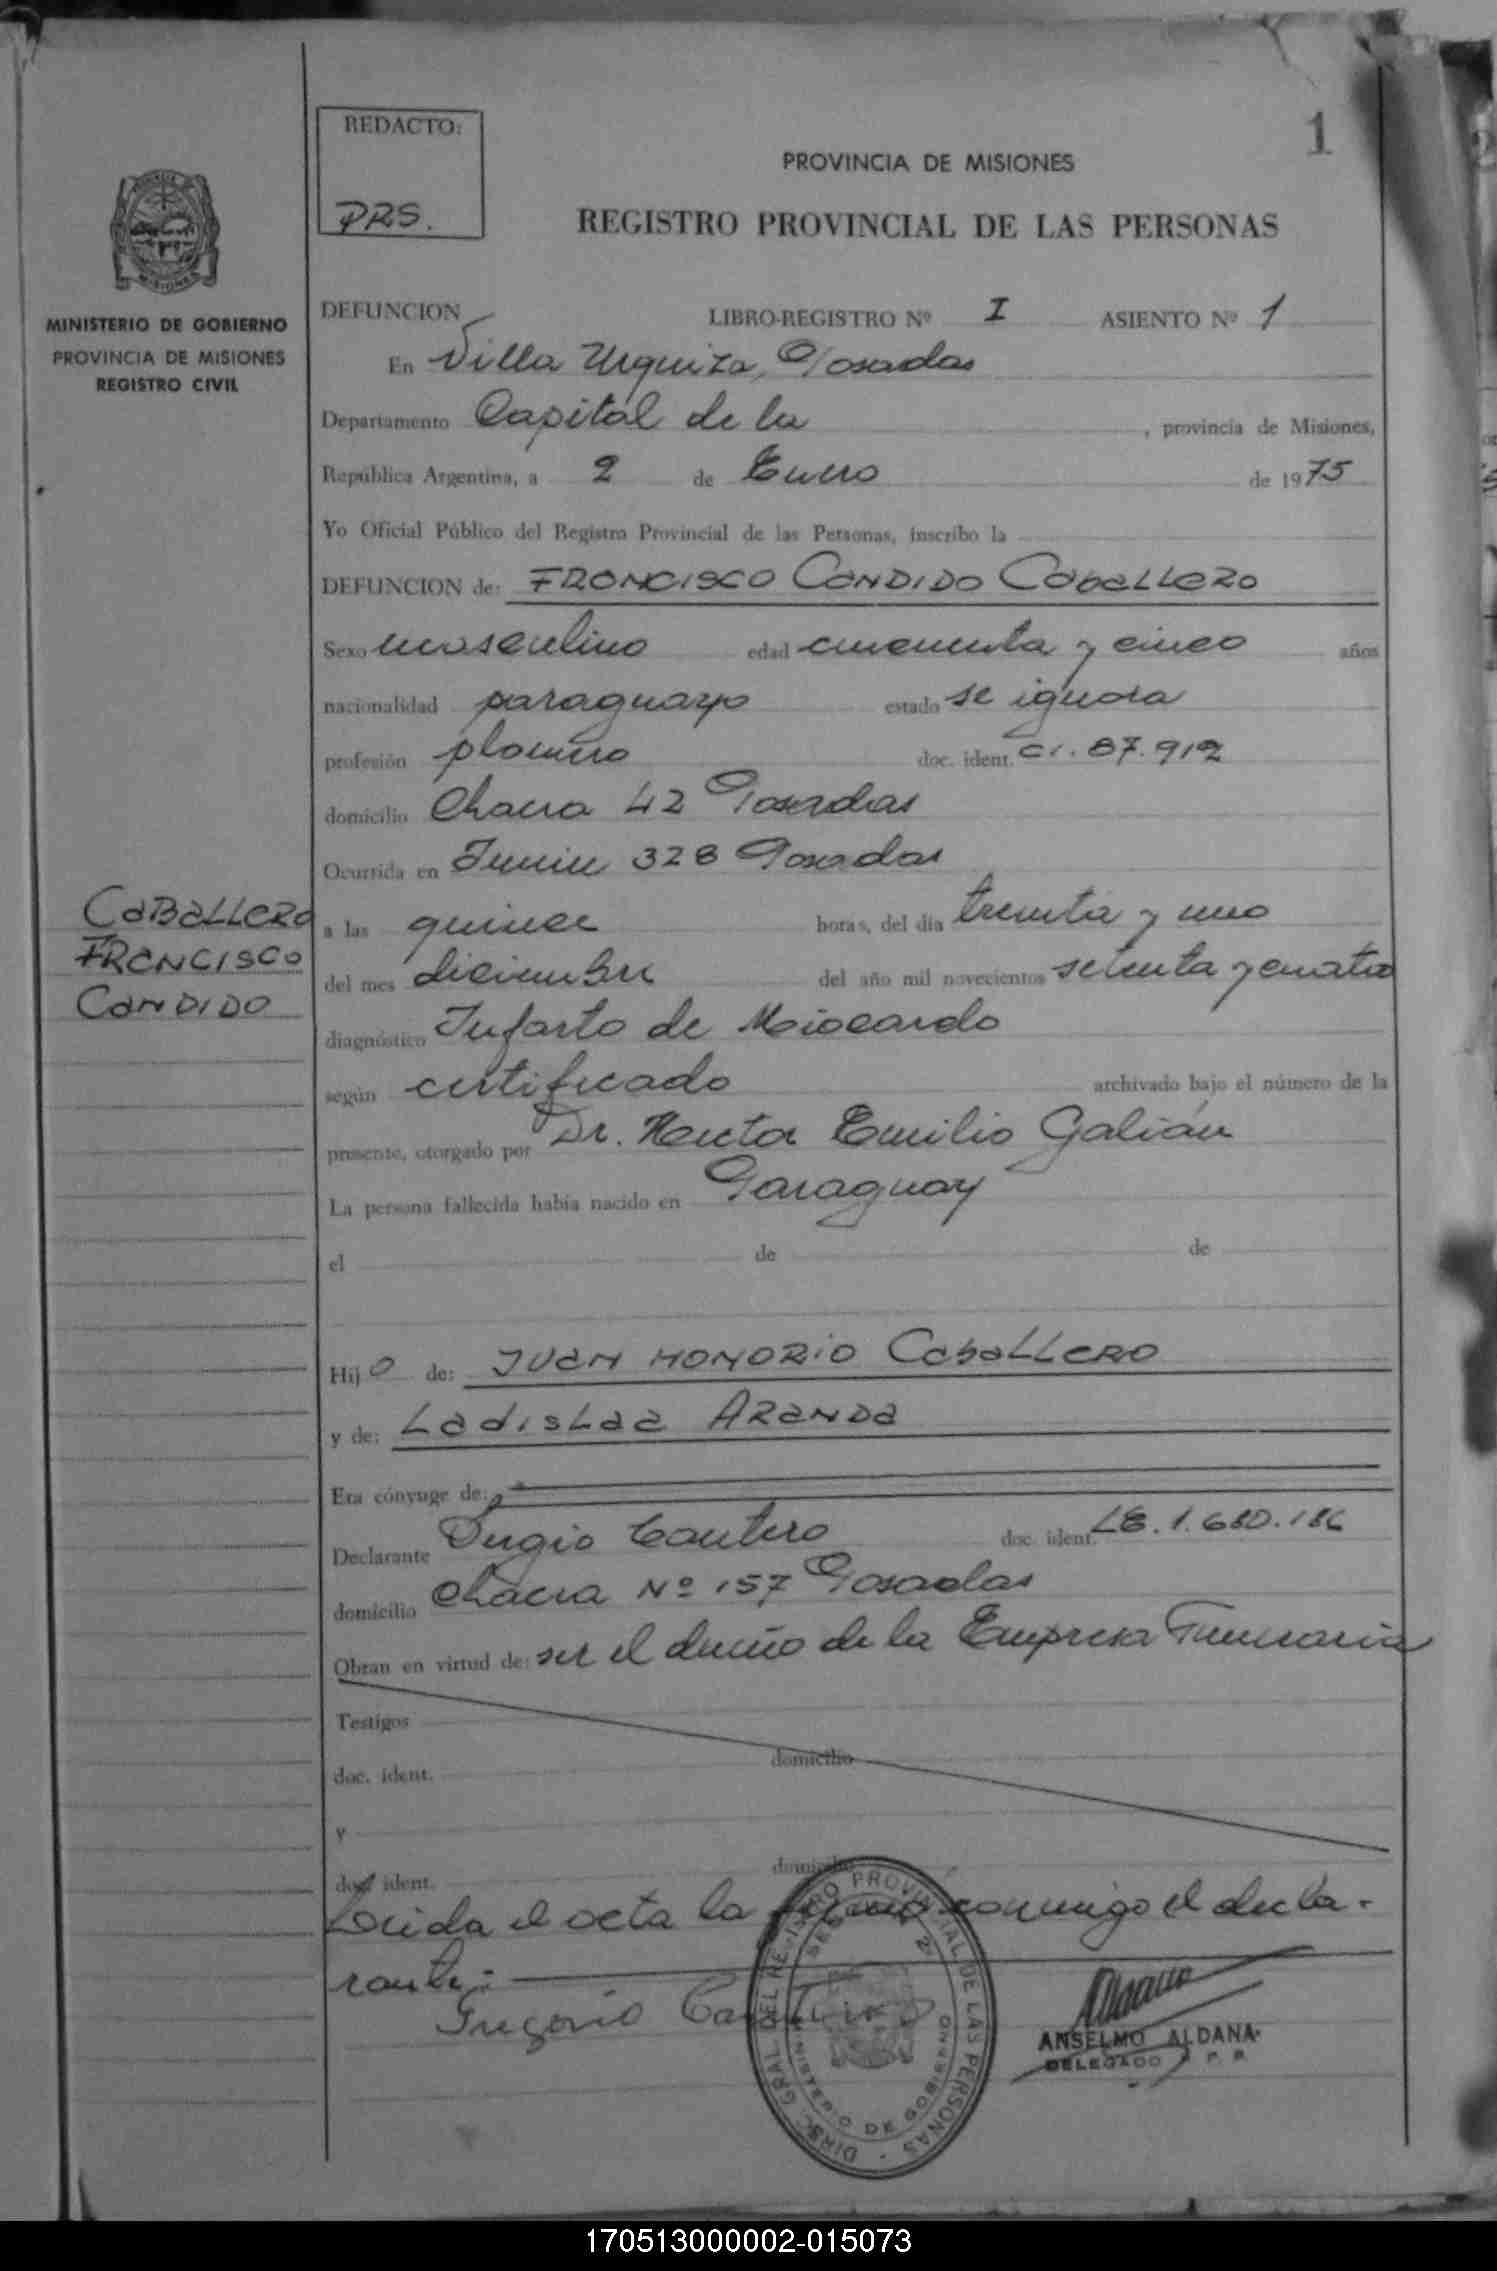 REDACTO:
PRS.
1
PROVINCIA DE MISIONES
REGISTRO PROVINCIAL DE LAS PERSONAS
MINISTERIO DE GOBIERNO
PROVINCIA DE MISIONES
REGISTRO CIVIL
DEFUNCION LIBRO-REGISTRO Nº I ASIENTO Nº 1
En Villa Urquiza, Posadas
Departamento Capital de la , provincia de Misiones,
República Argentina, a 2 de Enero de 1975
Yo Oficial Público del Registro Provincial de las Personas, inscribo la
DEFUNCION de: FRANCISCO CANDIDO CABALLERO
Sexo masculino edad cincuenta y cinco años
nacionalidad paraguayo estado se ignora
profesión plomero doc. ident. CI. 87.912
domicilio Chacra 42 Posadas
Ocurrida en Junin 328 Posadas
CABALLERO
FRANCISCO
CANDIDO
a las quince horas, del día treinta y uno
del mes diciembre del año mil novecientos setenta y cuatro
diagnóstico Infarto de Miocardo
según certificado archivado bajo el número de la
presente, otorgado por Dr. Hector Emilio Galián
La persona fallecida había nacido en Paraguay
el de de
Hijo de: JUAN HONORIO CABALLERO
y de: LADISLAA ARANDA
Era cónyuge de:
Declarante Cantero doc. ident. LE. 1.680.186
domicilio Chacra Nº 157 Posadas
Obran en virtud de: ser el dueño de la Empresa Funeraria
Testigos
doc. ident. domicilio
y
doc. ident. domicilio
Leida el acta la conmigo el decla-
rante.-
ANSELMO ALDANA
DELEGADO R. P. P.
DIREC. GRAL. DEL REGISTRO PROVINCIAL DE LAS PERSONAS
MINISTERIO DE GOBIERNO
170513000002-015073